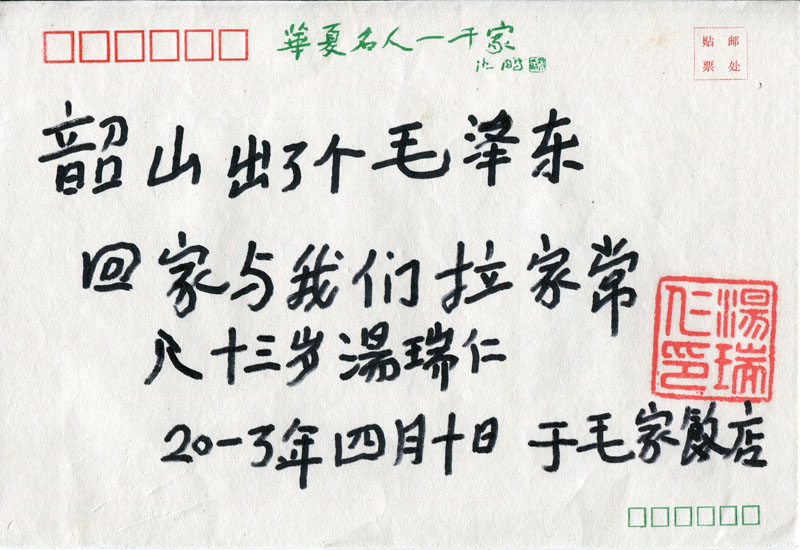 華夏名人一千家
沈鹏
贴邮
票处
韶山出了个毛泽东
回家与我们拉家常
八十三岁湯瑞仁
湯瑞仁印
二0一3年四月十日 于毛家飯店